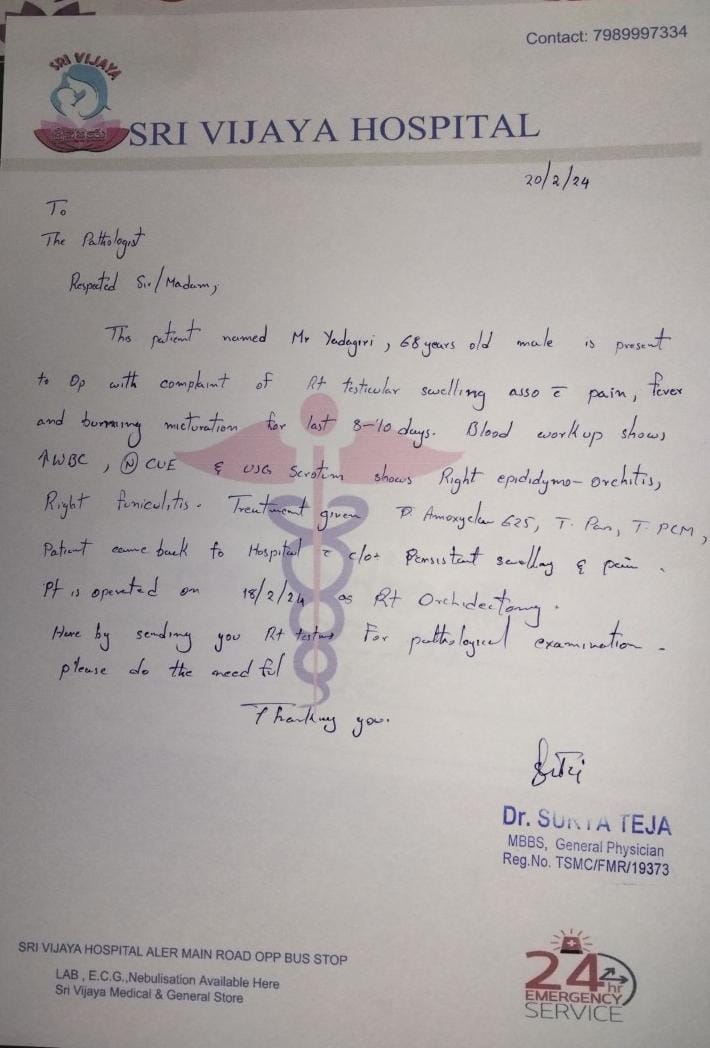 Contact: 7989997334
SRI VIJAYA
SRI VIJAYA HOSPITAL
20/2/24
To
The Pathologist
Respected Sir/Madam,
This patient named Mr Yadagiri, 68 years old male is present
to Op with complaint of Rt testicular swelling asso c̄ pain, fever
and burning micturation for last 8-10 days. Blood workup shows
↑WBC, Ⓝ CUE & USG Scrotum shows Right epididymo-orchitis,
Right funiculitis. Treatment given Amoxyclav 625, T. Pan, T. PCM,
Patient came back to Hospital c̄ c/o+ Persistent swelling & pain.
Pt is operated on 18/2/24 as Rt Orchidectomy.
Here by sending you Rt testis For pathological examination.
please do the need ful
Thanking you.
Dr. SURYA TEJA
MBBS, General Physician
Reg.No. TSMC/FMR/19373
SRI VIJAYA HOSPITAL ALER MAIN ROAD OPP BUS STOP
LAB , E.C.G.,Nebulisation Available Here
Sri Vijaya Medical & General Store
24 hr
EMERGENCY
SERVICE